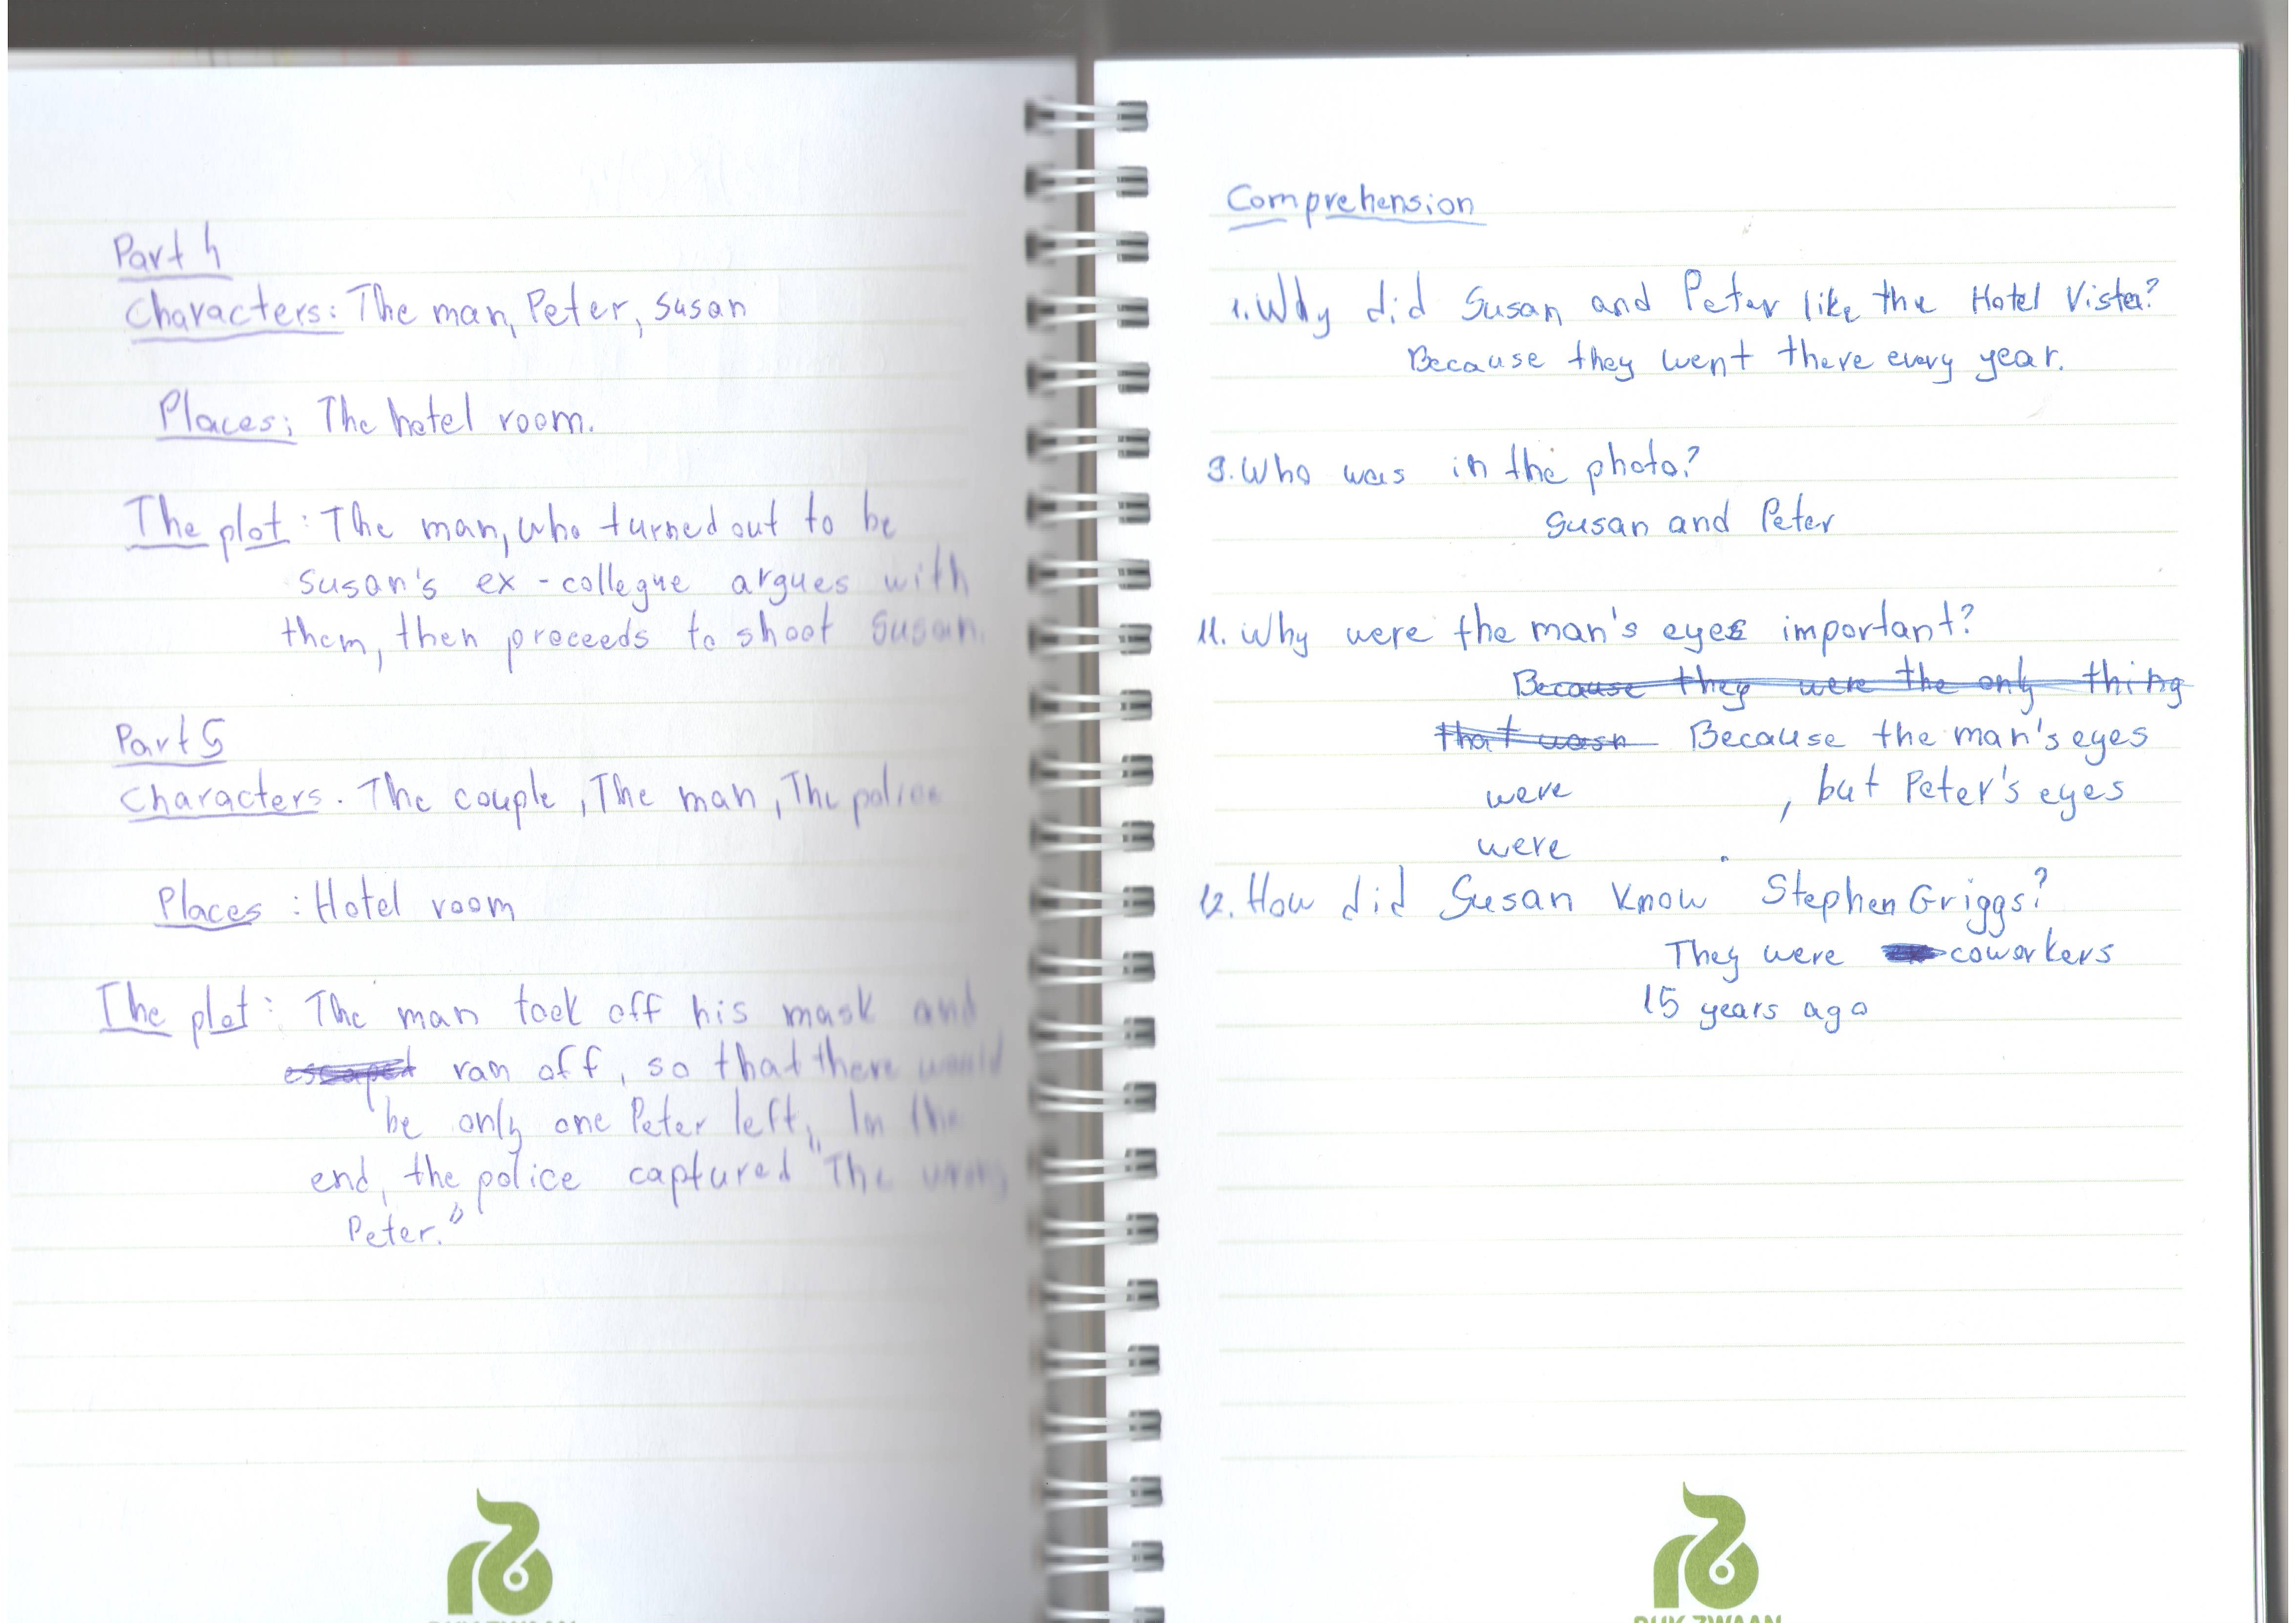 Part 4
Characters: The man, Peter, Susan
Places: The hotel room.
The plot: The man, who turned out to be
Susan's ex-collegue argues with
them, then proceeds to shoot Susan.
Part 5
Characters. The couple, The man, The police
Places: Hotel room
The plot: The man took off his mask and
escaped ran off, so that there would
be only one Peter left, In the
end, the police captured "The wrong
Peter."
Comprehension
1. Why did Susan and Peter like the Hotel Vista?
Because they went there every year.
3. Who was in the photo?
Susan and Peter
11. Why were the man's eyes important?
Because they were the only thing
that wasn Because the man's eyes
were , but Peter's eyes
were .
12. How did Susan know Stephen Griggs?
They were coworkers
15 years ago